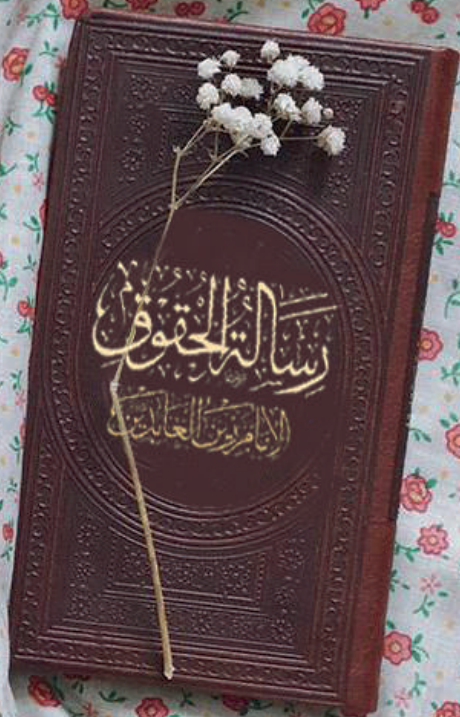 رسالة الحقوق
الإمام زين العابدين